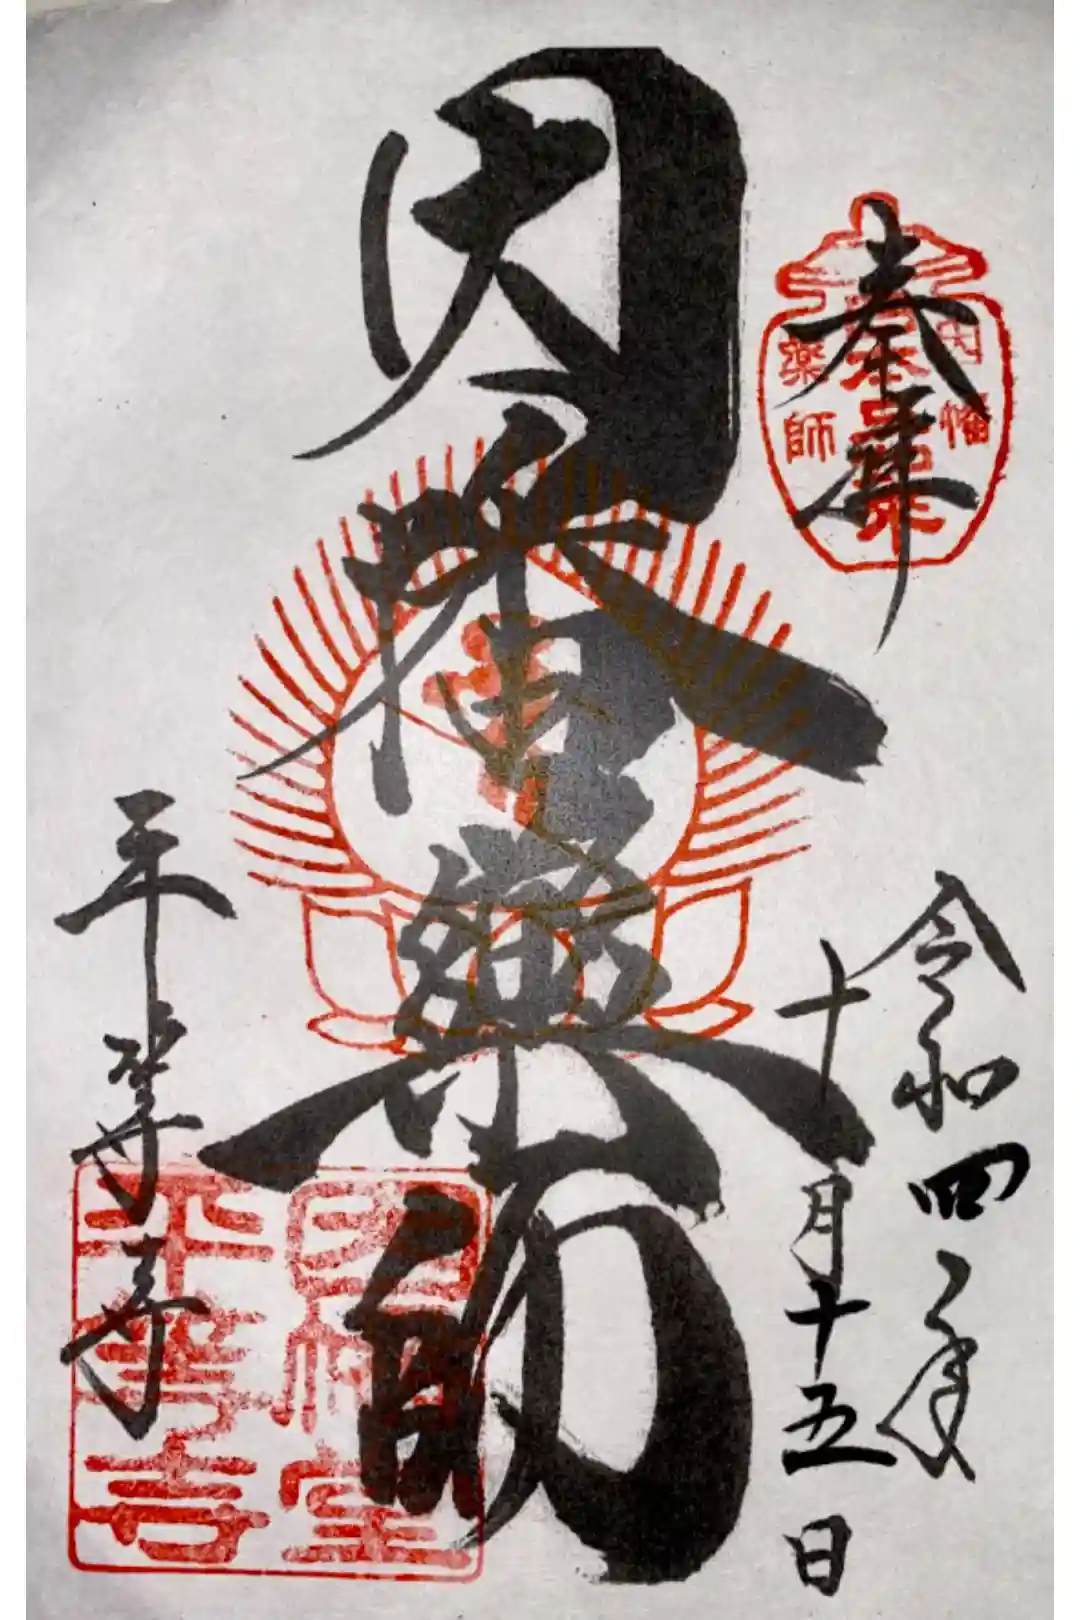 奉拝
因幡
薬師
日本三如来
令和四年
十月十五日
因幡薬師
平等寺
因幡堂
平等寺